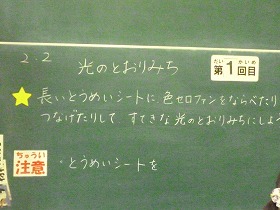 2.2
光のとおりみち
だい1かいめ
第1回目
★長いとうめいシートに、色セロファンをならべたり
つなげたりして すてきな光のとおりみちにしよう
ちゅうい
注意
・とうめいシートを